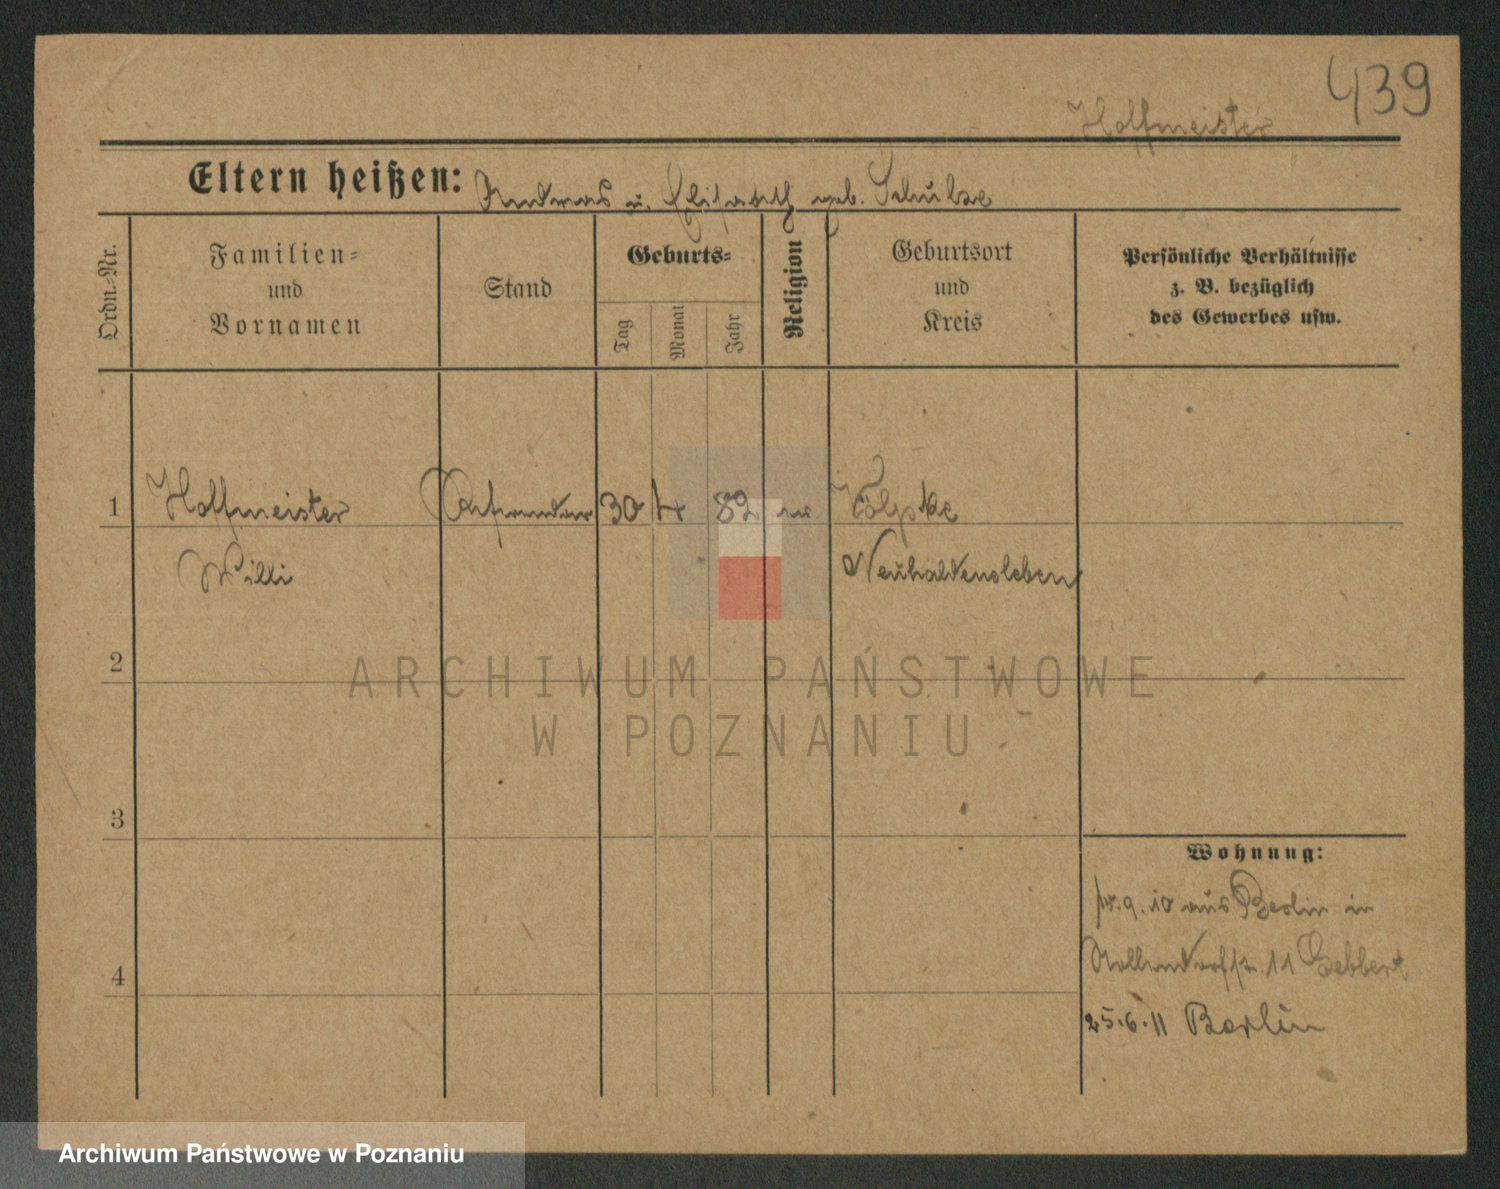 439
Hoffmeister
Eltern heißen: Andreas u. Elisabeth geb. Schulze
Ordn.-Nr.
Familien-
und
Vornamen
Stand
Geburts-
Tag
Monat
Jahr
Religion
Geburtsort
und
Kreis
Persönliche Verhältnisse
z. B. bezüglich
des Gewerbes usw.
1 Hoffmeister Referendar 30 82 Völpke
Willi Neuhaldensleben
2
3
4
Wohnung:
9.10 aus Berlin in
Nollendorfstr. 11 Gebbert
25.6.11 Berlin
ARCHIWUM PAŃSTWOWE
W POZNANIU
Archiwum Państwowe w Poznaniu